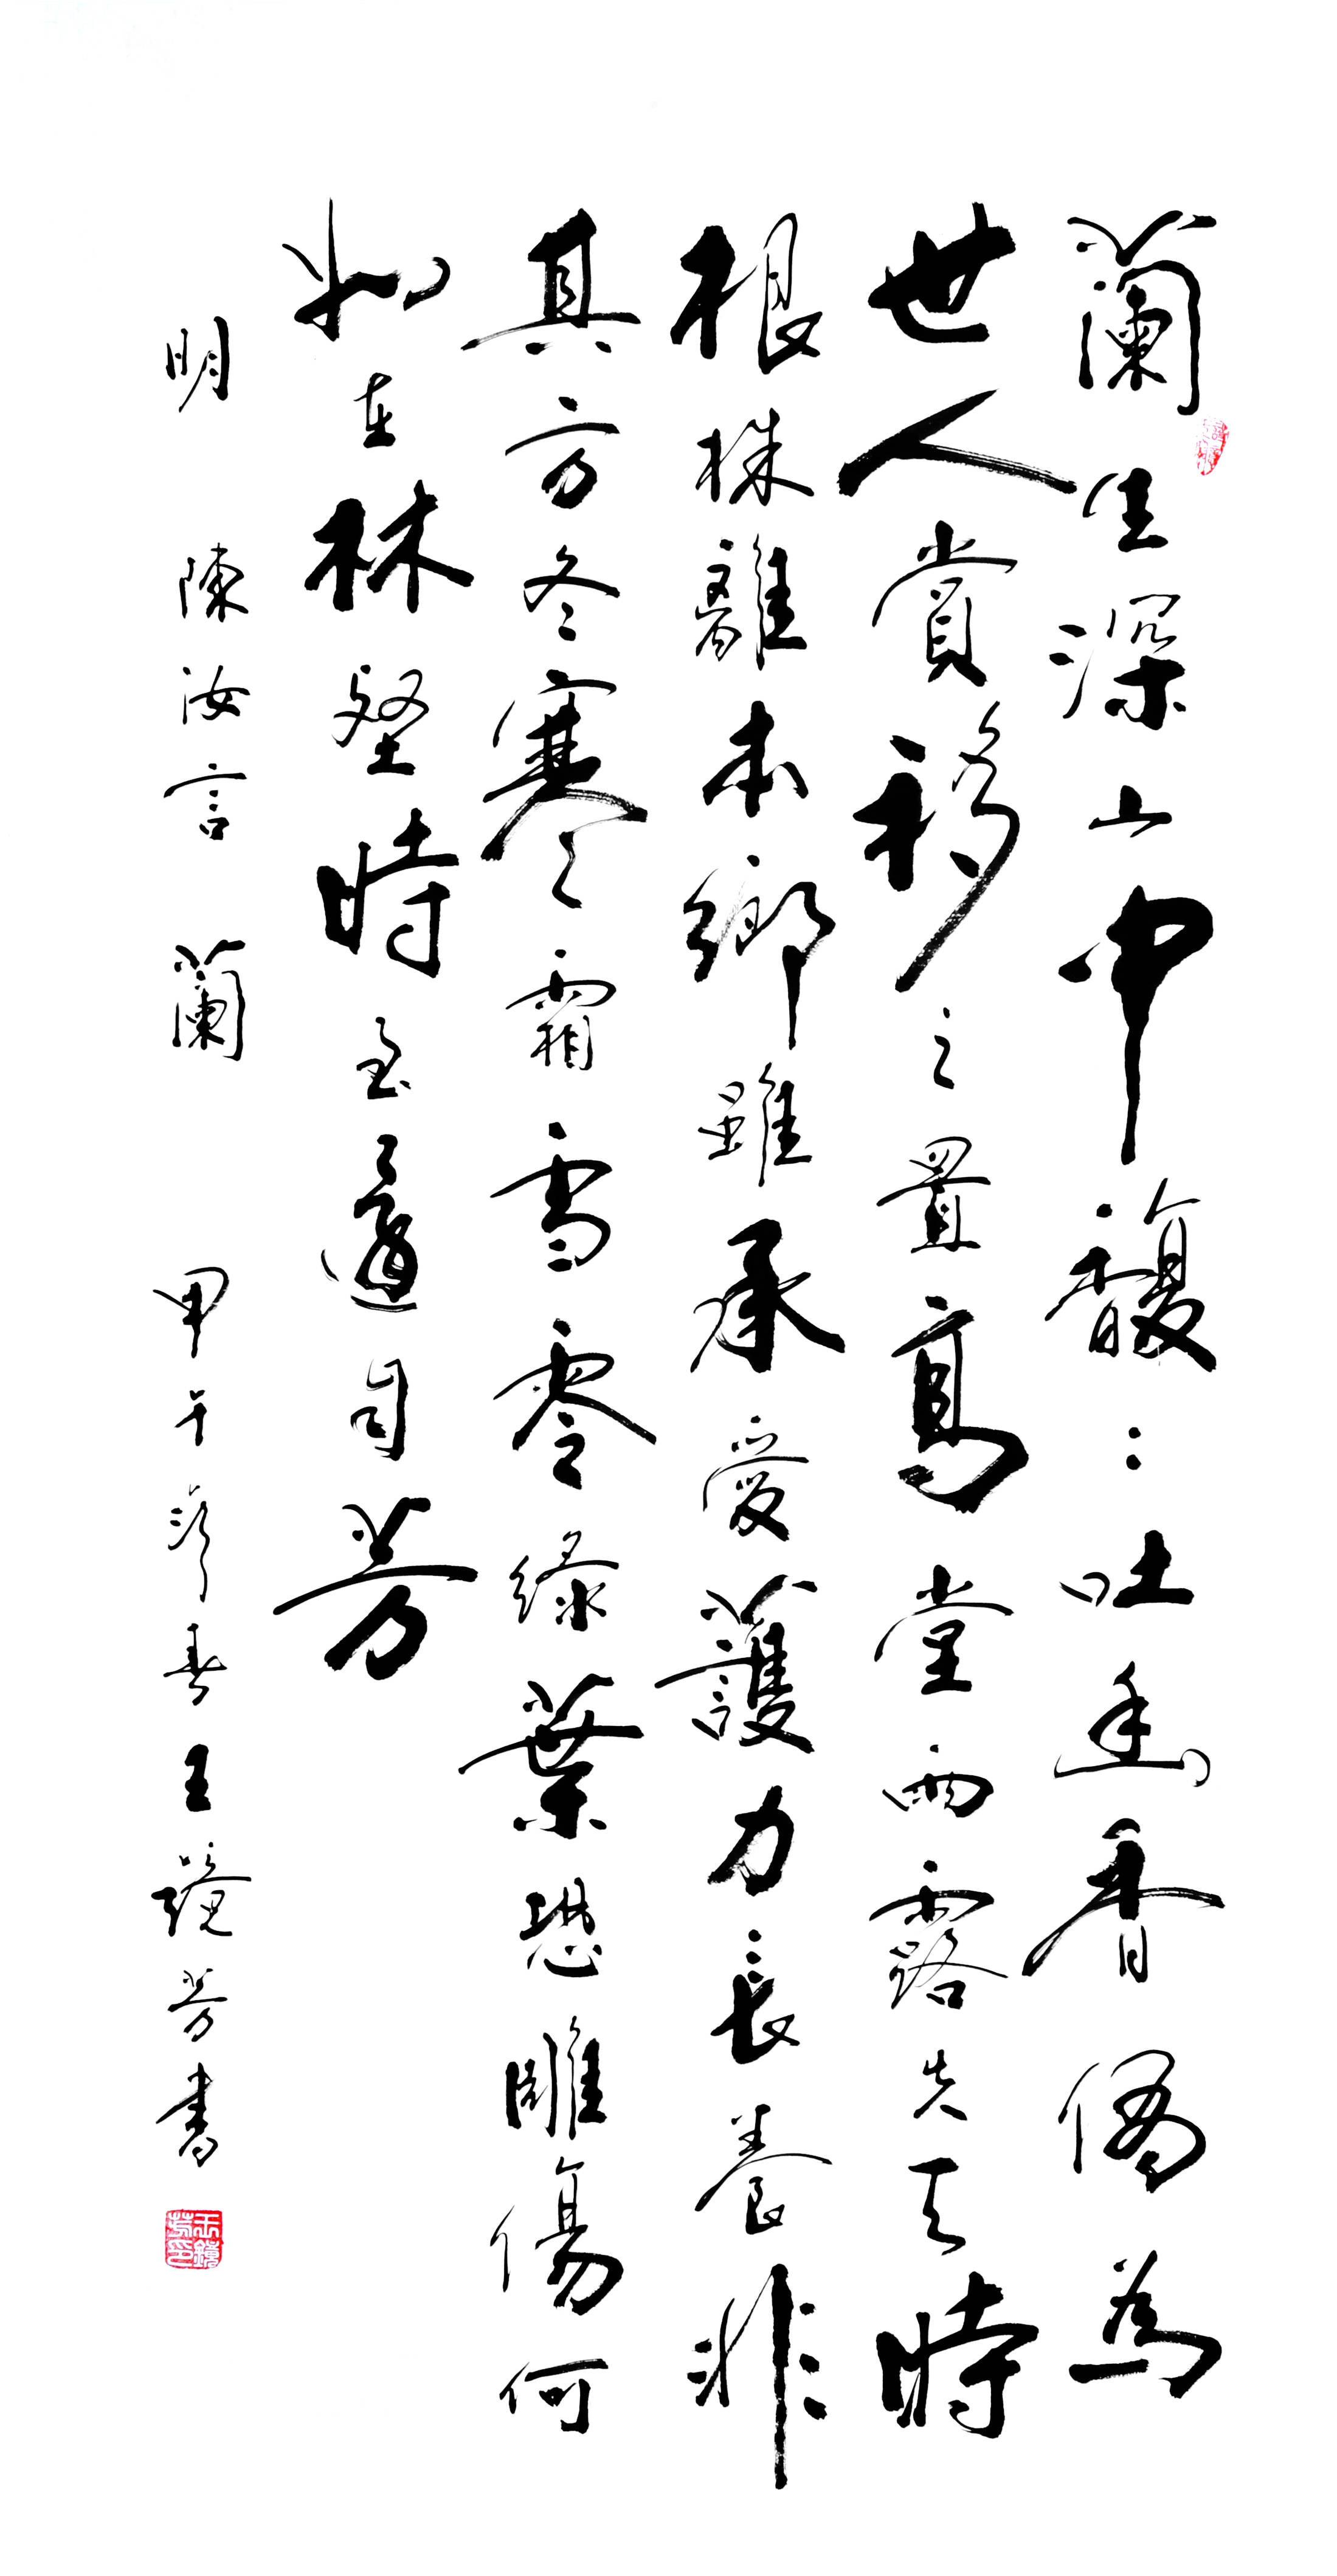 蘭生深山中馥〻吐幽香偶為
世人賞移之置高堂雨露失天時
根株離本鄉雖承愛護力長養非
其方冬寒霜雪零綠葉恐雕傷何
如在林壑時至還自芳
明 陳汝言 蘭 甲午春王鏡芳書
王鏡芳印